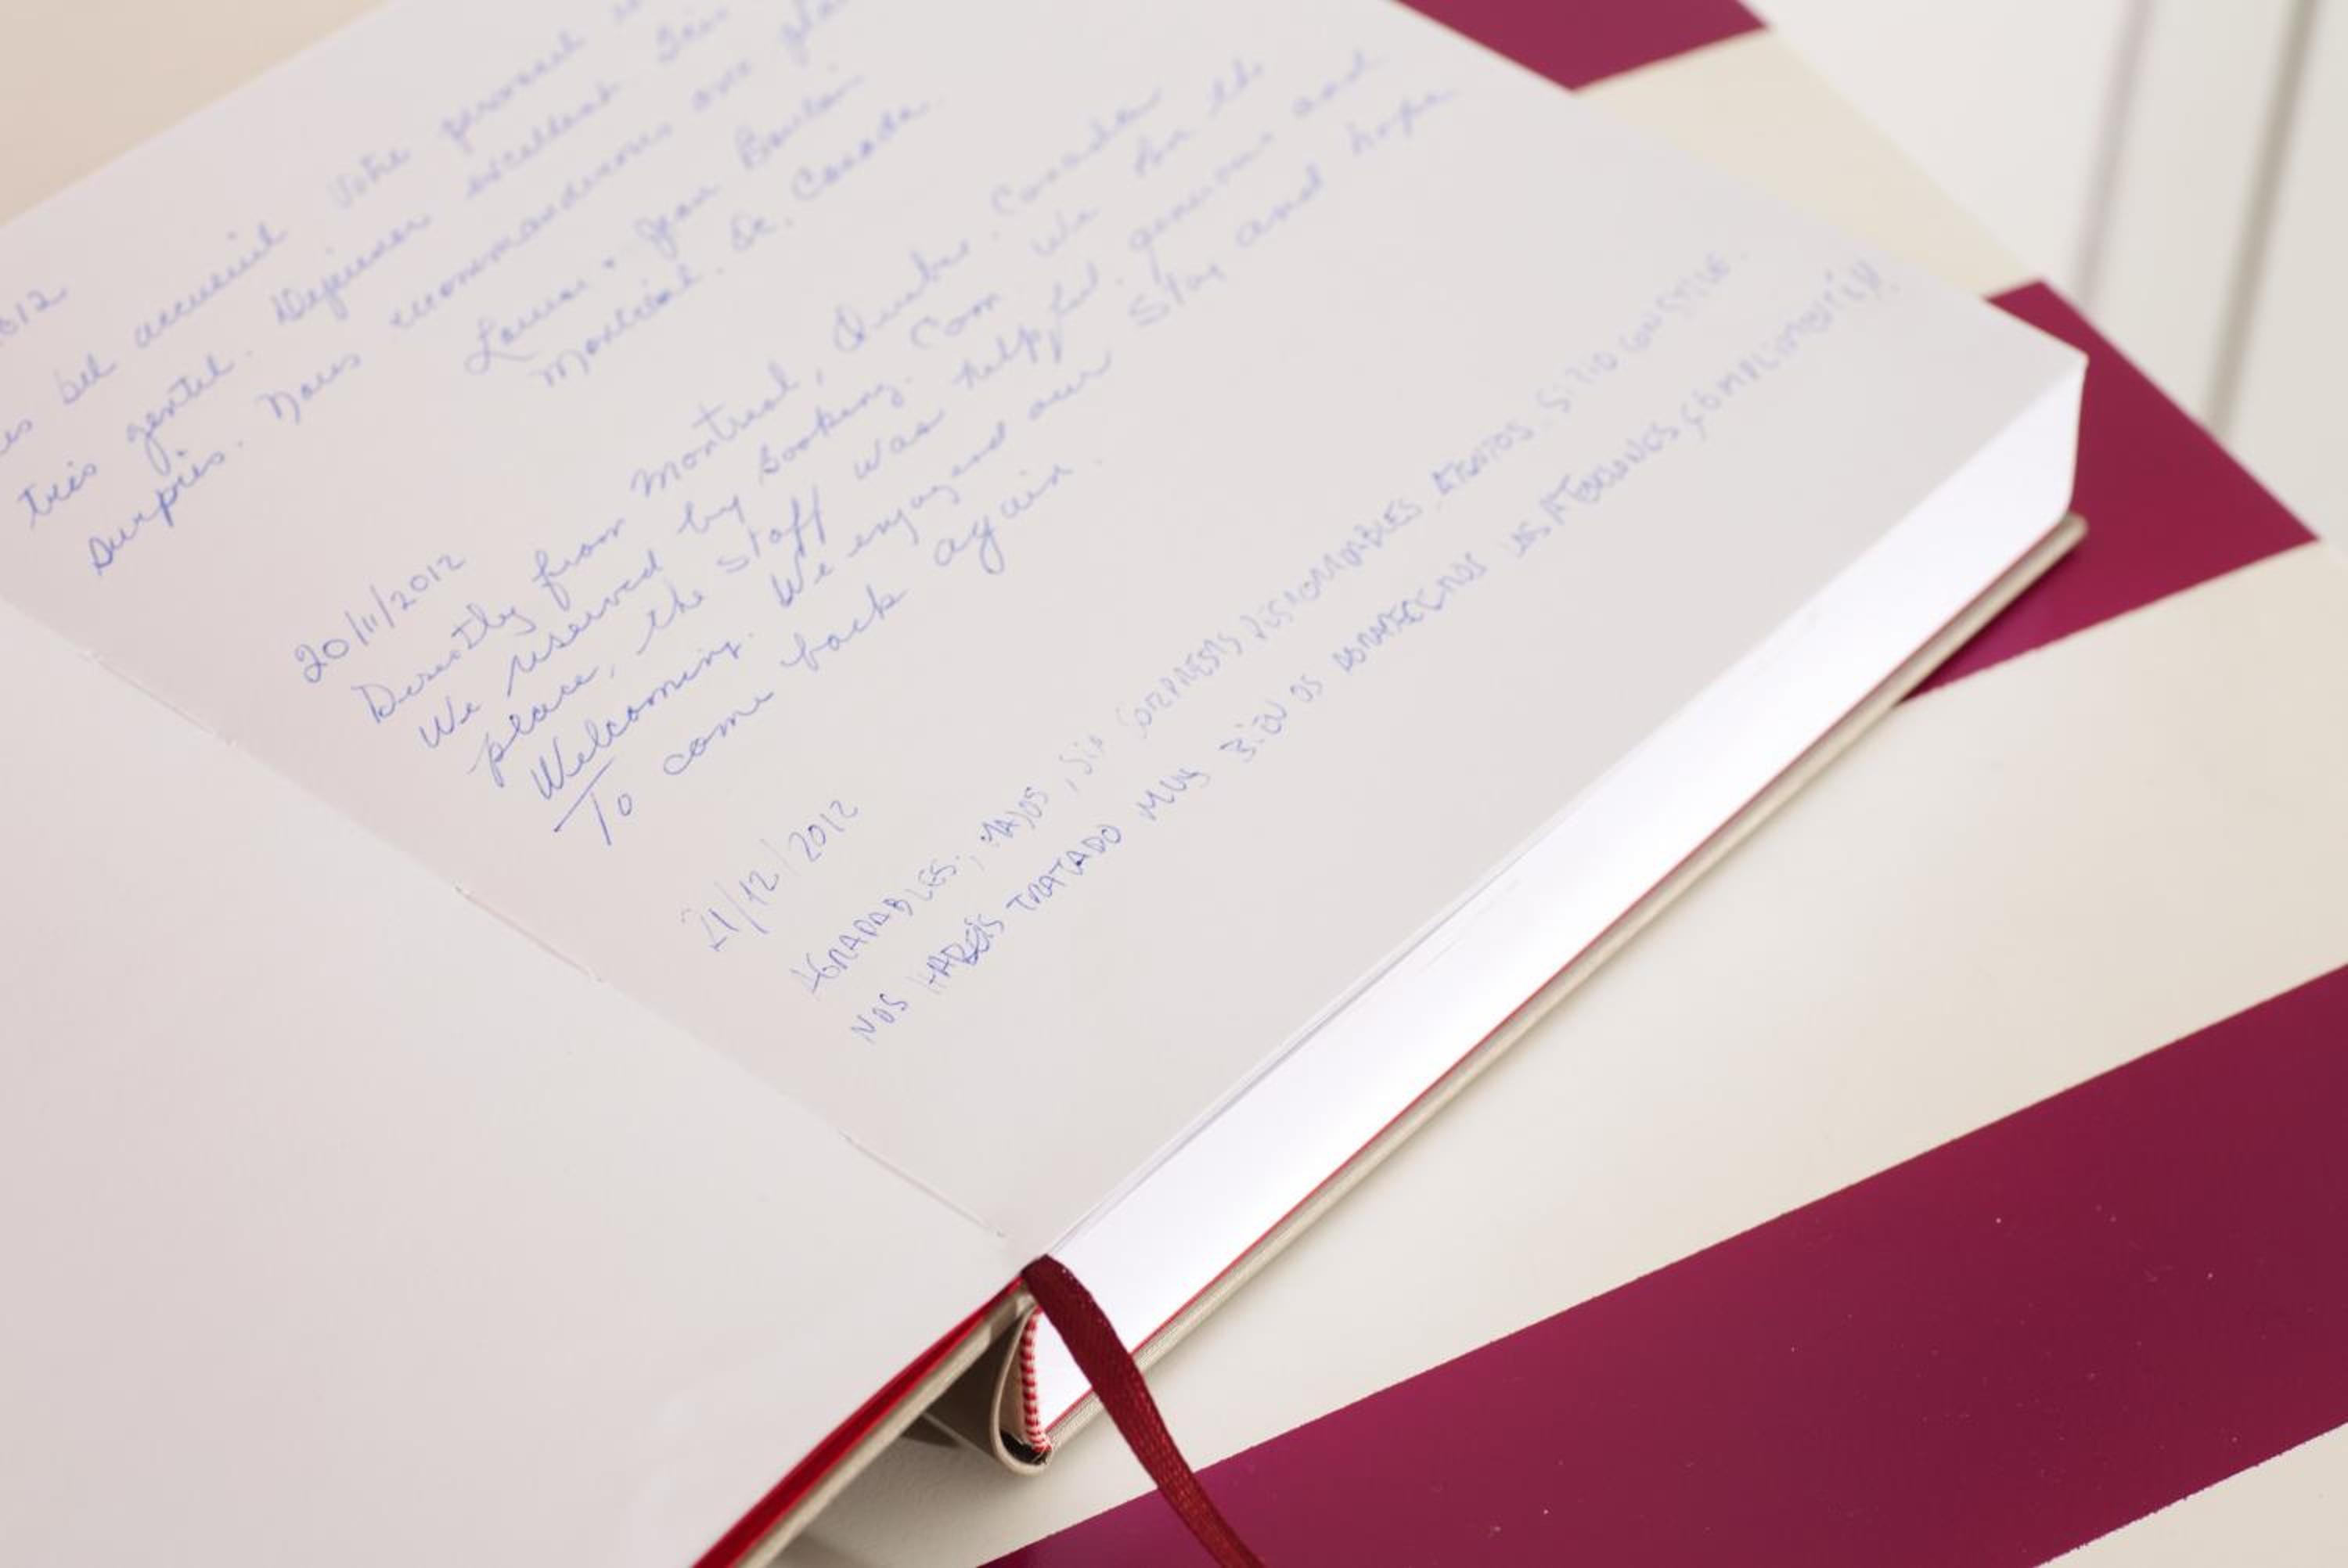 2012
bel accueil Votre personnel
très gentil. Déjeuner excellent.
surpris. Nous recommanderons
Louise + Jean
Montréal. Qc. Canada.
20/11/2012
Directly from Montreal, Quebec. Canada
We reserved by booking. Com. We
place, the staff was helpful. generous and
Welcoming. We enjoyed our stay and hope
To come back again.
21/12/2012
AGRADABLES, MAJOS, SIN ATENTOS. SITIO CON
NOS HABEIS TRATADO MUY BIEN OS AGRADECEMOS LAS ATENCIONES